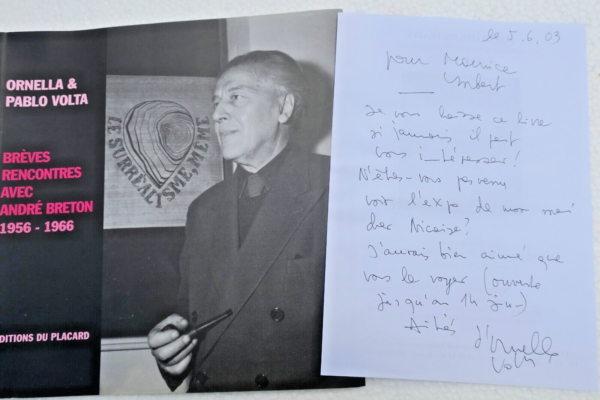 ORNELLA &
PABLO VOLTA
BRÈVES
RENCONTRES
AVEC
ANDRÉ BRETON
1956 - 1966
DITIONS DU PLACARD
LE SURRÉALISME, MÊME
le 5.6.03
pour Maurice
Imbert
Je vous laisse ce livre
si jamais il peut
vous intéresser!
N'êtes-vous pas venu
voir l'expo de mon mari
chez Nicaise?
J'aurais bien aimé que
vous la voyez (ouverte
jusqu'au 14 juin)
Amitiés
d'Ornella
Volta